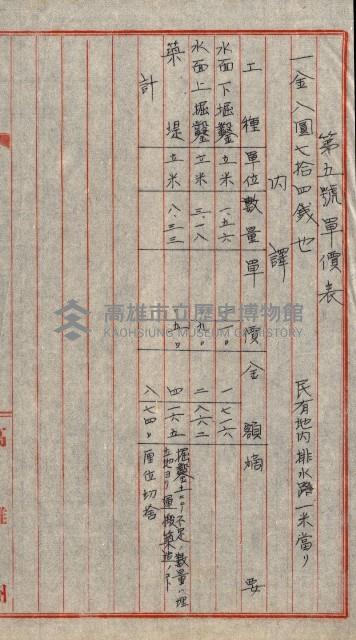 第五號單價表
民有地內排水路一米當リ
一金八圓七拾四錢也
內譯
工種 單位 數量 單價 金額 摘要
水面下掘鑿 立米 一.五六 一.一〇 一七一六
水面上掘鑿 立米 三.一八 九〇 二八六二
築堤 立米 八.三三 五〇 四一六五 掘鑿土ニテ不足ノ數量ハ埋
立地ヨリ運搬築造ノ
計 八七四〇 厘位切捨
高雄市立歷史博物館
KAOHSIUNG MUSEUM OF HISTORY